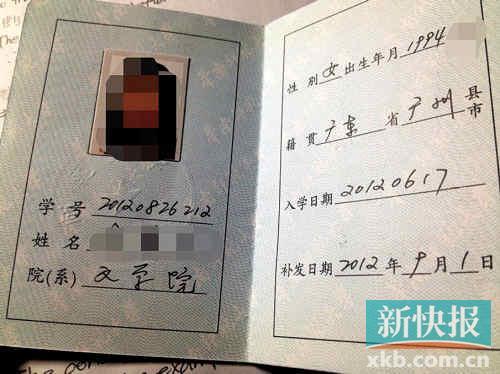 学 号 20120826212
姓 名
院(系) 文学院
性 别 女 出生年月 1994
籍 贯 广东 省 广州 县市
入学日期 20120617
补发日期 2012 年 9 月 1 日
新快报
xkb.com.cn